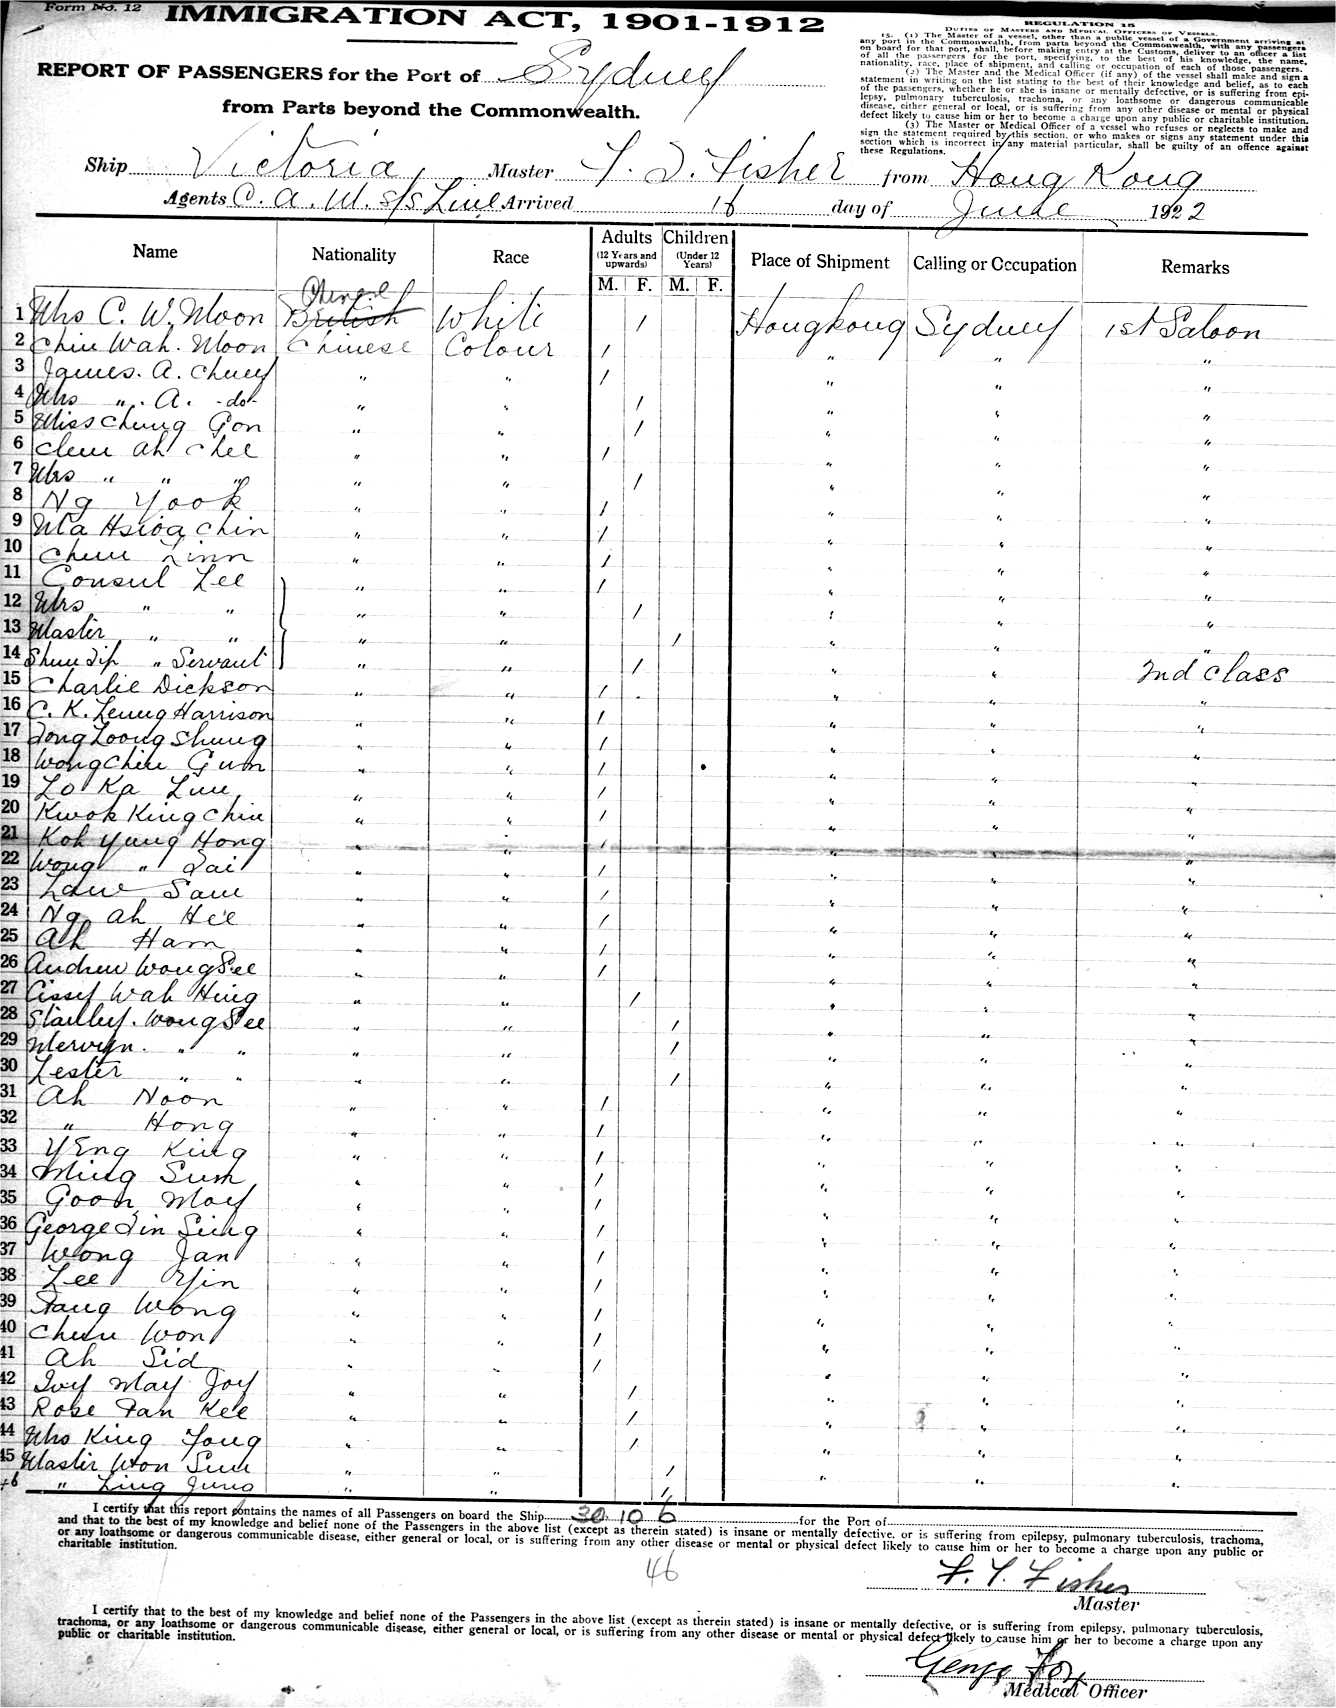 Form No. 12
IMMIGRATION ACT, 1901-1912
REPORT OF PASSENGERS for the Port of Sydney
from Parts beyond the Commonwealth.
REGULATION 15
DUTIES OF MASTERS AND MEDICAL OFFICERS OF VESSELS.
15. (1) The Master of a vessel, other than a public vessel of a Government arriving at
any port in the Commonwealth, from parts beyond the Commonwealth, with any passengers
on board for that port, shall, before making entry at the Customs, deliver to an officer a list
of all the passengers for the port, specifying, to the best of his knowledge, the name,
nationality, race, place of shipment, and calling or occupation of each of those passengers.
(2) The Master and the Medical Officer (if any) of the vessel shall make and sign a
statement in writing on the list stating to the best of their knowledge and belief, as to each
of the passengers, whether he or she is insane or mentally defective, or is suffering from epi-
lepsy, pulmonary tuberculosis, trachoma, or any loathsome or dangerous communicable
disease, either general or local, or is suffering from any other disease or mental or physical
defect likely to cause him or her to become a charge upon any public or charitable institution.
(3) The Master or Medical Officer of a vessel who refuses or neglects to make and
sign the statement required by this section, or who makes or signs any statement under this
section which is incorrect in any material particular, shall be guilty of an offence against
these Regulations.
Ship Victoria Master Fisher from Hong Kong
Agents S/S Line Arrived 16 day of June 1922
Name Nationality Race Adults (12 Years and upwards) Children (Under 12 Years) Place of Shipment Calling or Occupation Remarks
M. F. M. F.
Chinese
1 Mrs C. W. Moon British White / Hongkong Sydney 1st Saloon
2 Chin Wah. Moon Chinese Colour / " " "
3 James. A. Chuey " " / " " "
4 Mrs " A. -do- " " / " " "
5 Miss Chung Gon " " / " " "
6 Chun Ah Chee " " / " " "
7 Mrs " " " " " / " " "
8 Ng Yook " " / " " "
9 Ma Hsioa Chin " " / " " "
10 Chun Linn " " / " " "
11 Consul Lee " " / " " "
12 Mrs " " " " / " " "
13 Master " " " " / " " "
14 " Servant " " / " " 2nd Class
15 Charlie Dickson " " / " " "
16 C. K. Leung Harrison " " / " " "
17 Tong Loong Shung " " / " " "
18 Wong Chin Gum " " / " " "
19 Lo Ka Lun " " / " " "
20 Kwok King Chin " " / " " "
21 Koh Yung Hong " " / " " "
22 Wong " Tai " " / " " "
23 Law Sam " " / " " "
24 Ng Ah Hee " " / " " "
25 Ah Ham " " / " " "
26 Andrew Wong See " " / " " "
27 Cissy Wah Hing " " / " " "
28 Stanley. Wong See " " / " " "
29 Mervyn. " " " " / " " "
30 Lester " " " " / " " "
31 Ah Noon " " / " " "
32 " Hong " " / " " "
33 Yeng King " " / " " "
34 Ming Sum " " / " " "
35 Goon May " " / " " "
36 George Tin Sing " " / " " "
37 Wong Jan " " / " " "
38 Lee Yin " " / " " "
39 Fang Wong " " / " " "
40 Chun Won " " / " " "
41 Ah Sid " " / " " "
42 Ivy May Joy " " / " " "
43 Rose Fan Kee " " / " " "
44 Mrs King Fong " " / " " "
45 Master Won Sun " " / " " "
46 " Ling Jung " " / " "
I certify that this report contains the names of all Passengers on board the Ship 30 10 6 for the Port of
and that to the best of my knowledge and belief none of the Passengers in the above list (except as therein stated) is insane or mentally defective, or is suffering from epilepsy, pulmonary tuberculosis, trachoma,
or any loathsome or dangerous communicable disease, either general or local, or is suffering from any other disease or mental or physical defect likely to cause him or her to become a charge upon any public or
charitable institution.
46
Fisher
Master
I certify that to the best of my knowledge and belief none of the Passengers in the above list (except as therein stated) is insane or mentally defective, or is suffering from epilepsy, pulmonary tuberculosis,
trachoma, or any loathsome or dangerous communicable disease, either general or local, or is suffering from any other disease or mental or physical defect likely to cause him or her to become a charge upon any
public or charitable institution.
George Fox
Medical Officer